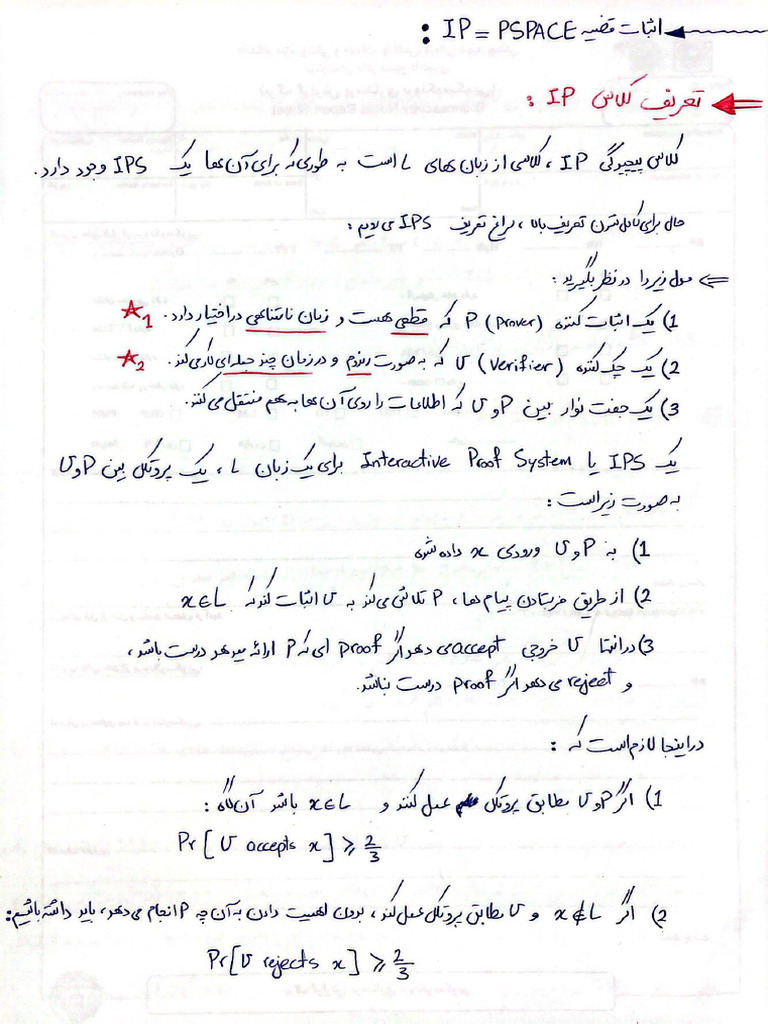 اثبات قضیه IP = PSPACE :
تعریف کلاس IP :
کلاس پیچیدگی IP ، کلاسی از زبان های L است به طوری که برای آن ها یک IPS وجود دارد.
حال برای کامل شدن تعریف بالا ، سراغ تعریف IPS می رویم :
مدل زیر را در نظر بگیرید :
1) یک اثبات کننده P (Prover) که قطعی هست و زمان نامتناهی در اختیار دارد. ☆1
2) یک چک کننده V (Verifier) که به صورت رندوم و در زمان چند جمله ای کار می کند. ☆2
3) یک جفت نوار بین P و V که اطلاعات را روی آن ها به هم منتقل می کنند.
یک IPS یا Interactive Proof System برای یک زبان L ، یک پروتکل بین P و V
به صورت زیر است :
1) به P و V ورودی x داده شده
2) از طریق فرستادن پیام ها، P تلاش می کند به V اثبات کند که x ∈ L
3) در انتها V خروجی accept می دهد اگر proof ای که P ارائه میدهد درست باشد ،
و reject می دهد اگر proof درست نباشد.
در اینجا لازم است که :
1) اگر P و V مطابق پروتکل عمل کنند و x ∈ L باشد آن گاه :
Pr [ V accepts x ] ⩾ 2/3
2) اگر x ∉ L و V مطابق پروتکل عمل کند ، بدون اهمیت دادن به آن چه P انجام می دهد ، باید داشته باشیم :
Pr [ V rejects x ] ⩾ 2/3